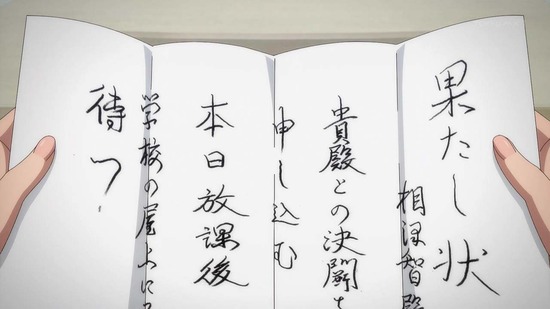 果たし状
相沢智殿
貴殿との決闘を
申し込む
本日放課後
学校の屋上にて
待つ